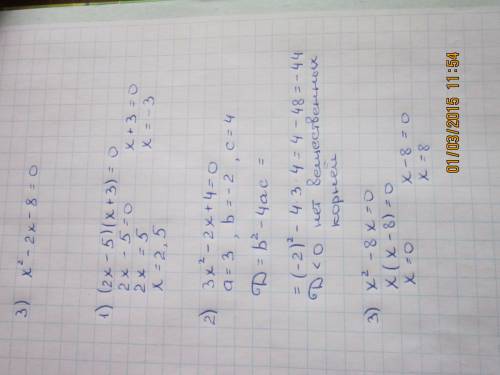 3) x² - 2x - 8 = 0
1) (2x - 5)(x + 3) = 0
2x - 5 = 0 x + 3 = 0
2x = 5 x = -3
x = 2,5
2) 3x² - 2x + 4 = 0
a = 3, b = -2, c = 4
D = b² - 4ac =
= (-2)² - 4·3·4 = 4 - 48 = -44
D < 0 нет вещественных
корней
3) x² - 8x = 0
x(x - 8) = 0
x = 0 x - 8 = 0
x = 8
01/03/2015 11:54